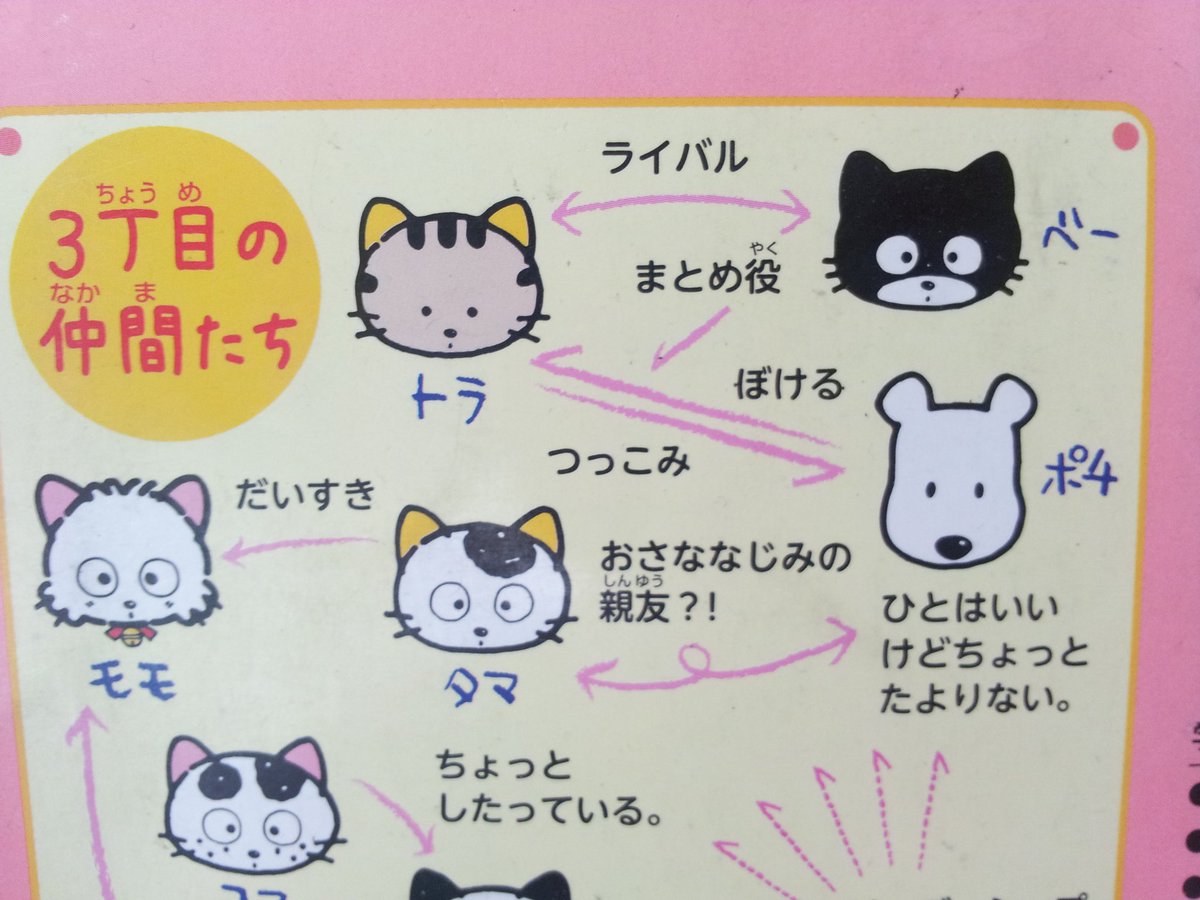 3丁目の
ちょうめ
仲間たち
なかま
ライバル
ブー
まとめ役
やく
トラ
ぼける
つっこみ
ポチ
だいすき
おさななじみの
親友?!
しんゆう
モモ
タマ
ひとはいい
けどちょっと
たよりない。
ちょっと
したっている。